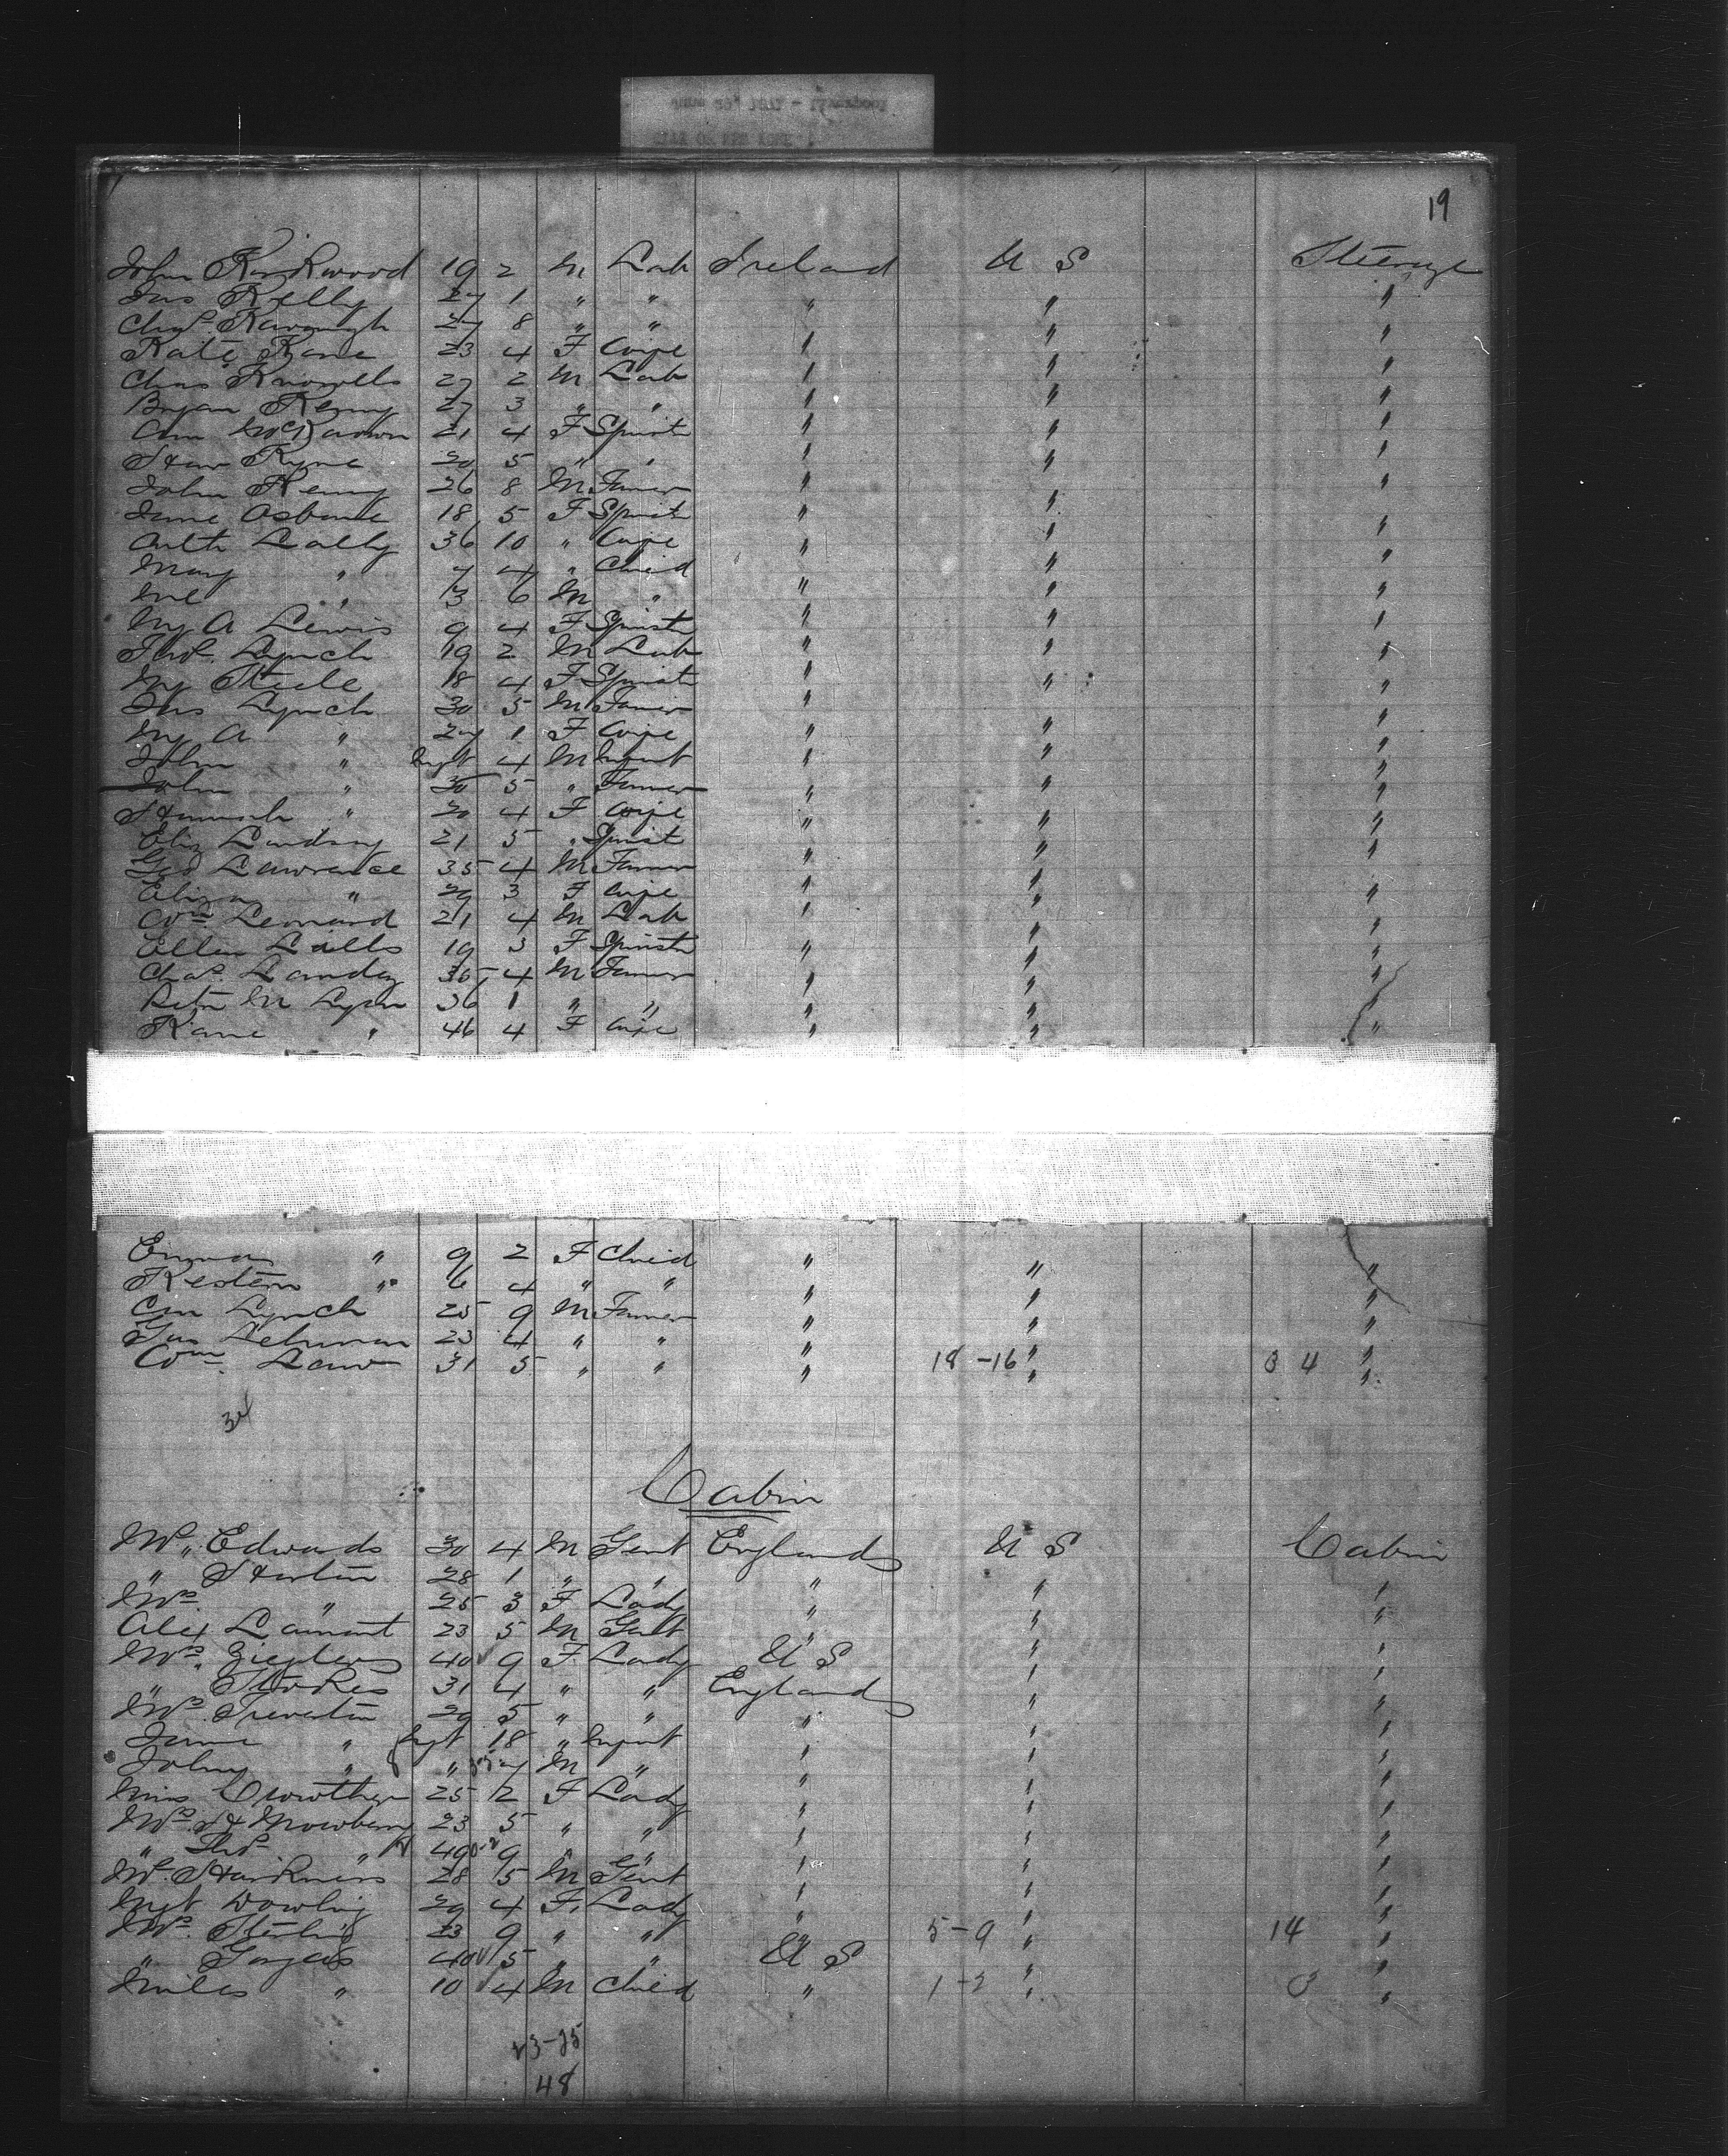 19
John Kirkwood 19 2 M Lab Ireland U S Steerage
Jas Kelly 27 1 " " " " "
Chas. Kavanagh 27 8 " " " " "
Kate Kane 23 4 F Wife " " "
Chas Knowells 27 2 M Lab " " "
Bryan Kenny 27 3 " " " " "
Ann McKeown 21 4 F Spinst " " "
Kyne 20 5 " " " " "
John Kenny 26 8 M Farmer " " "
Jane Osborne 18 5 F Spinst " " "
Cath Lally 36 10 " Wife " " "
Mary " 7 4 " Child " " "
" 6 M " " " "
My A Lewis 9 4 F Spinst " " "
Thos. Lynch 19 2 M Lab " " "
My Steele 18 4 F Spinst " " "
Jas Lynch 30 5 M Farmer " " "
My A " 27 1 F Wife " " "
John " Inft 4 M Infant " " "
John " 30 5 " Farmer " " "
Hannah " 20 4 F Wife " " "
Eliz Lindsay 21 5 " Spinst " " "
Geo Lawrence 35 4 M Farmer " " "
Eliza " 29 3 F Wife " " "
Wm Leonard 21 4 M Lab " " "
Ellen Lills 19 3 F Spinst " " "
Chas. Landey 35 4 M Farmer " " "
Petr M Lyon 36 1 " " " " "
Kane " 46 4 F Wife " " "
Emma " 9 2 F Child " " "
Kesten " 6 4 " " " " "
Lynch 25 9 M Farmer " " "
Gus Lehman 23 4 " " " " "
Wm. Law 31 5 " " " 18-16 " 3 4 "
34
Cabin
Mr. Edwards 30 4 M Gent England U S Cabin
" Horton 28 1 " " " " "
Mrs. " 25 3 F Lady " " "
Alex Lamont 23 5 M Gent " " "
Mrs. Zieglers 40 9 F Lady U S " "
" Stokes 31 4 " " England " "
Mrs. Treverton 29 5 " " " " "
Jane " Inft 18 " Infant " " "
John " " M " " " "
Miss Crowther 25 2 F Lady " " "
Mrs. H Mowberry 23 5 " " " " "
" Thos " 49 9 " " " " "
Mr. Harkness 28 5 M Gent " " "
Mgt Dowling 29 4 F. Lady " " "
Mrs. Sterling 23 9 " " " 5-9 " 14 "
" 40 5 " " U S " "
Miles " 10 4 M Child " 1-2 " 3 "
23-25
48